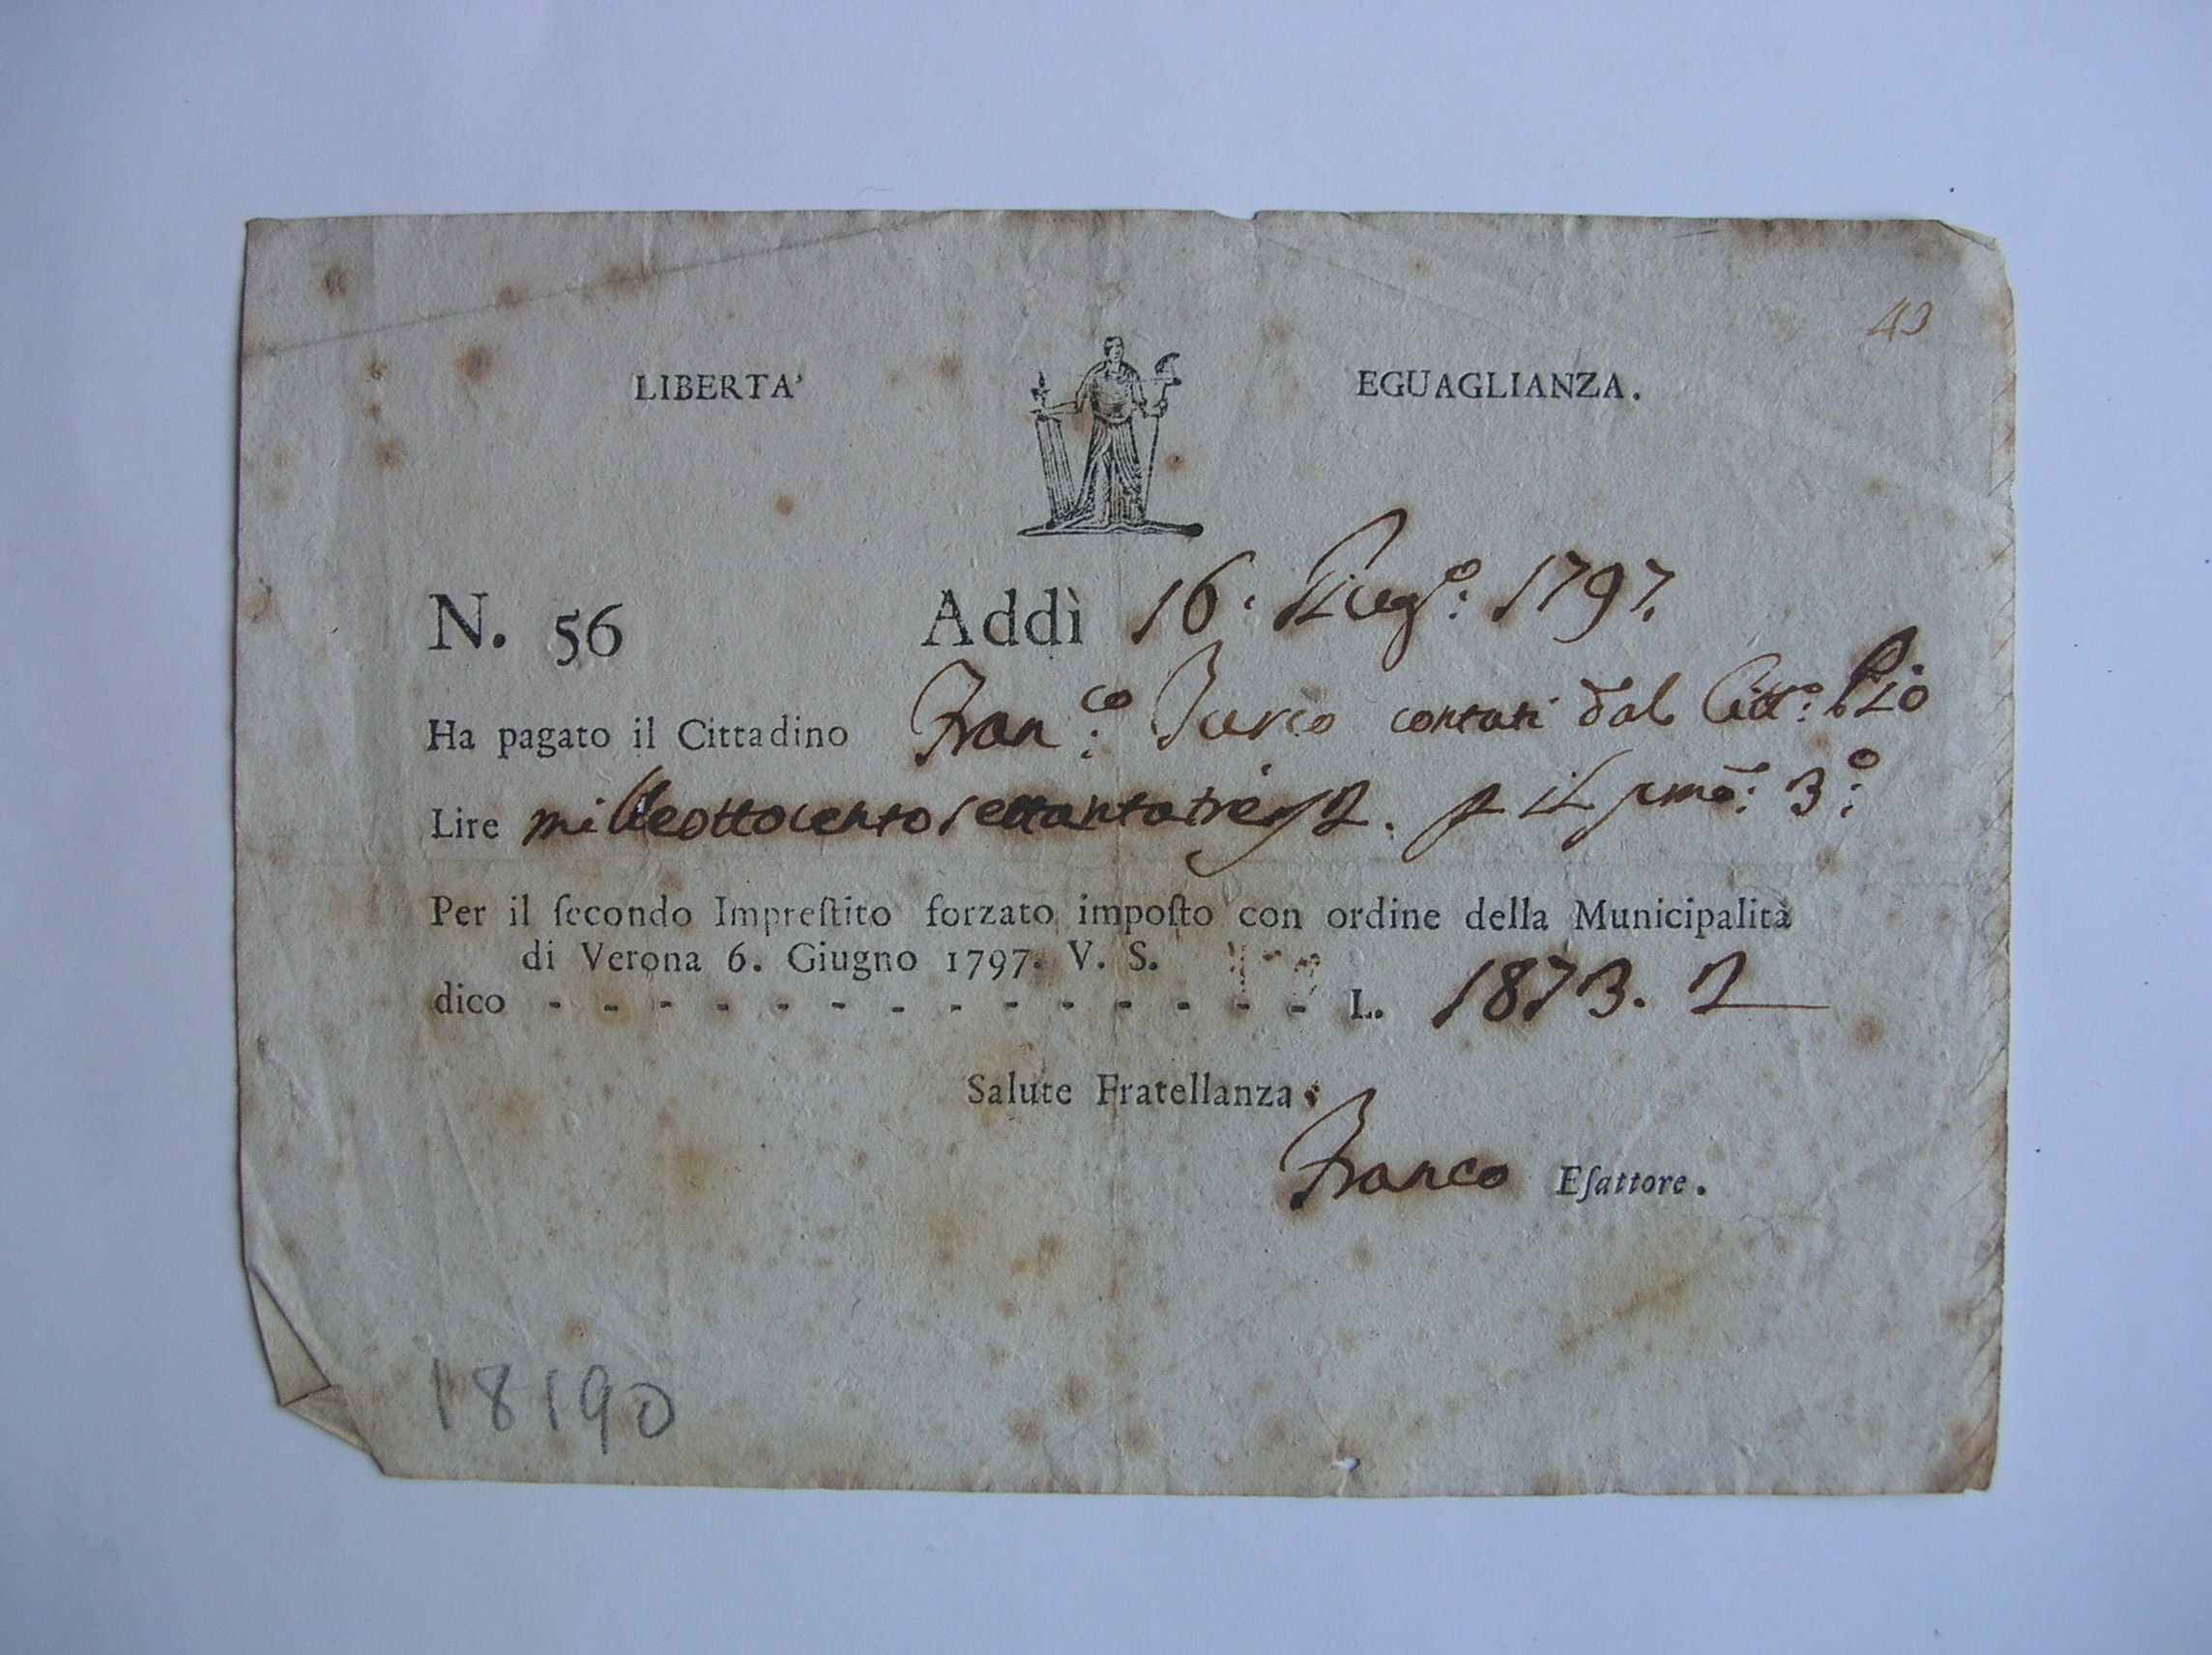 43
LIBERTA' EGUAGLIANZA.
N. 56 Addì 16: Giug.º: 1797.
Ha pagato il Cittadino Fran:co Turco contati dal Citt.º: Pio
Lire milleottocento settantatrè s 2. p il pmo: 3º:
Per il ſecondo Impreſtito forzato impoſto con ordine della Municipalità
di Verona 6. Giugno 1797. V. S.
dico - - - - - - - - - - - - - - L. 1873. 2
Salute Fratellanza.
Franco Eſattore.
18190